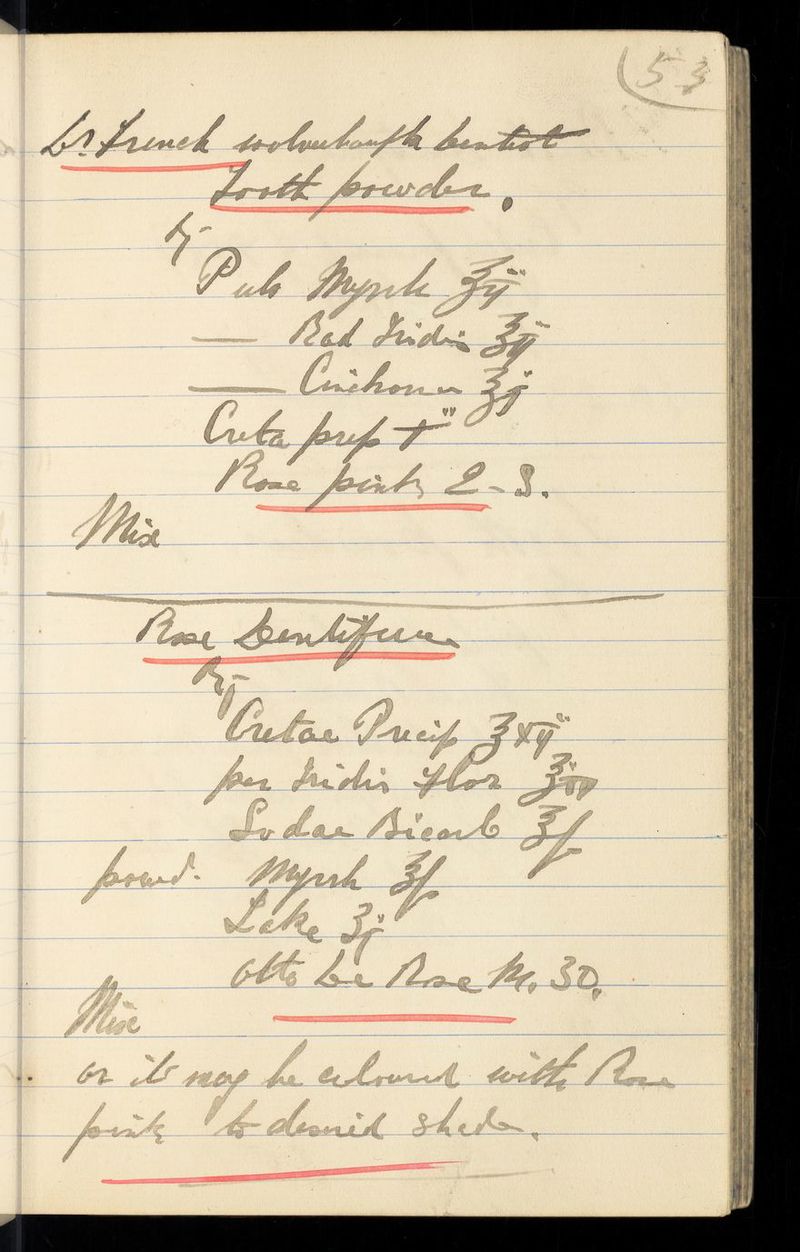 53
Dr. French Wolverhampth Dentist
Tooth powder.
Rj
Pulv Myrrh ℥ij
— Rad Iridis ℥ij
— Cinchona ℥j
Creta prep
Rose pink 2-3.
Mix
Rose Dentifrice
Rj
Cretae Precip ℥xij
Iridis Flor
Sodae Bicarb ℥ʃ
powd. Myrrh ℥ʃ
Lake ʒj
otto de Rose M. 30.
Mix
or it may be coloured with Rose
pink to desired shade.